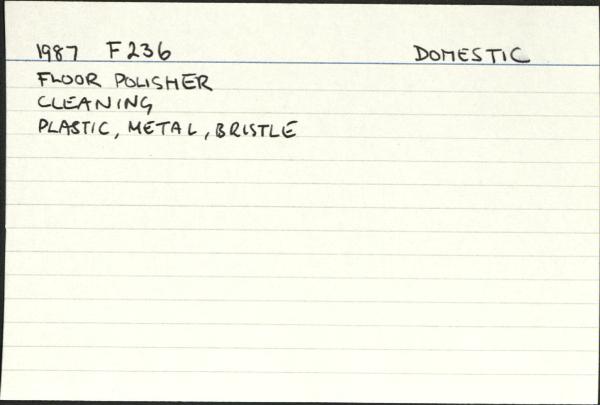 1987 F236 DOMESTIC
FLOOR POLISHER
CLEANING
PLASTIC, METAL, BRISTLE